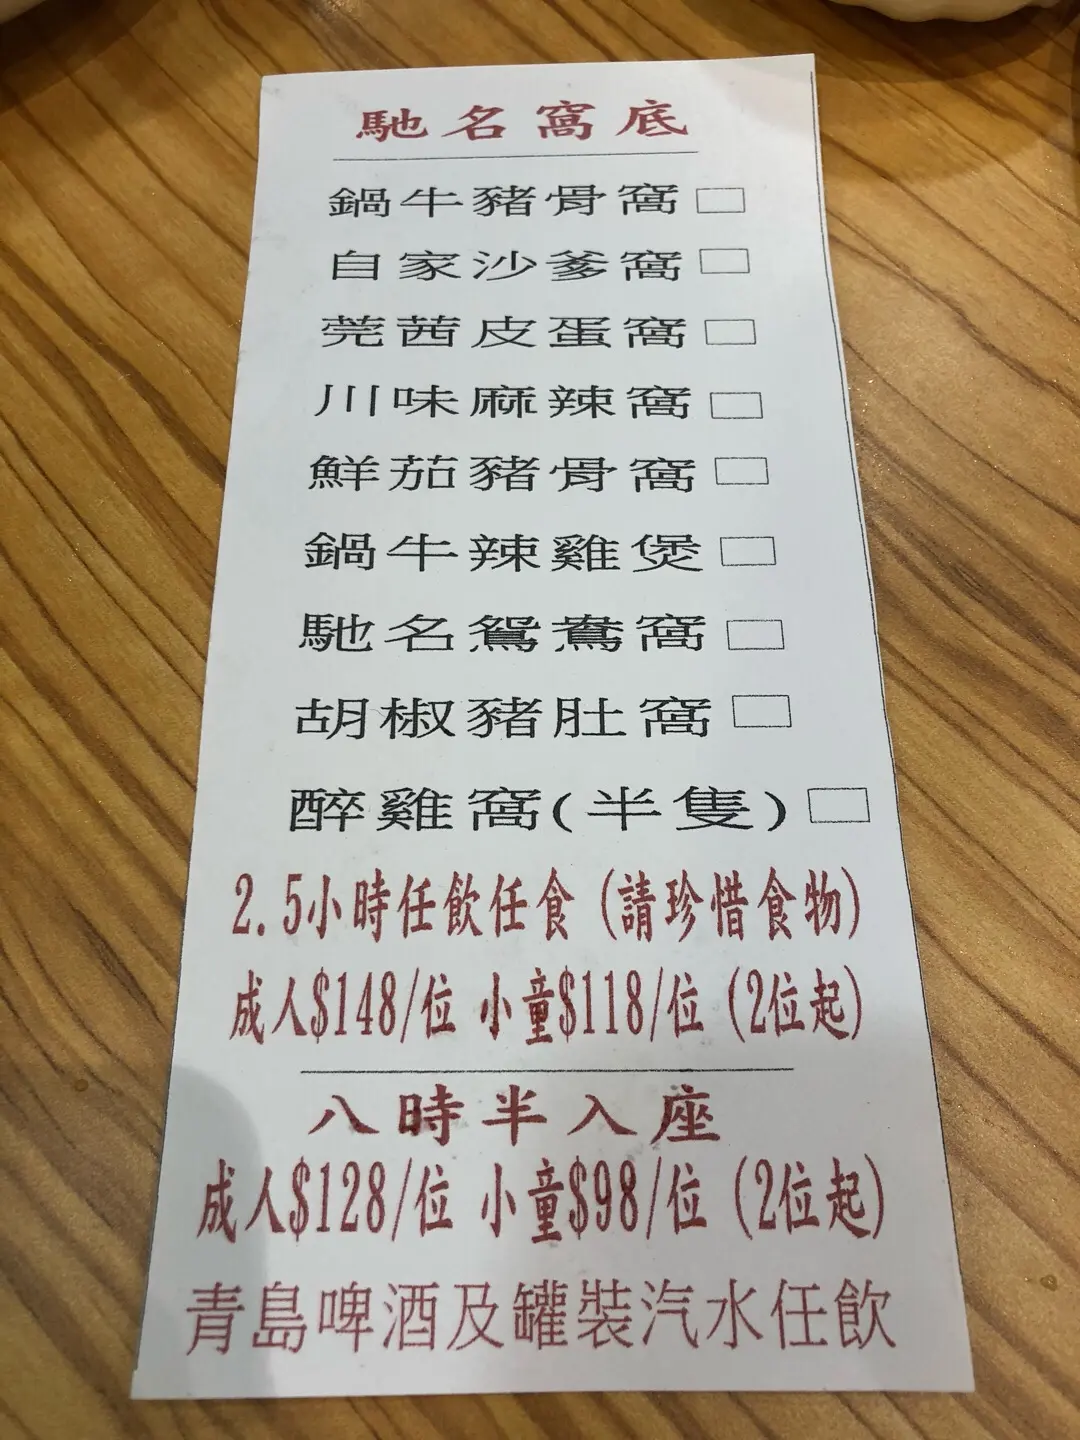 馳名窩底
鍋牛豬骨窩
自家沙爹窩
莞茜皮蛋窩
川味麻辣窩
鮮茄豬骨窩
鍋牛辣雞煲
馳名鴛鴦窩
胡椒豬肚窩
醉雞窩(半隻)
2.5小時任飲任食(請珍惜食物)
成人$148/位 小童$118/位(2位起)
八時半入座
成人$128/位 小童$98/位(2位起)
青島啤酒及罐裝汽水任飲